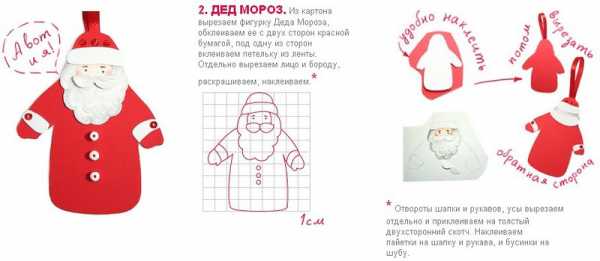 А вот
и я!
2. ДЕД МОРОЗ. Из картона
вырезаем фигурку Деда Мороза,
обклеиваем ее с двух сторон красной
бумагой, под одну из сторон
вклеиваем петельку из ленты.
Отдельно вырезаем лицо и бороду,
раскрашиваем, наклеиваем.*
1см
удобно наклеить
потом вырезать
обратная сторона
* Отвороты шапки и рукавов, усы вырезаем
отдельно и приклеиваем на толстый
двухсторонний скотч. Наклеиваем
пайетки на шапку и рукава, и бусинки на
шубу.